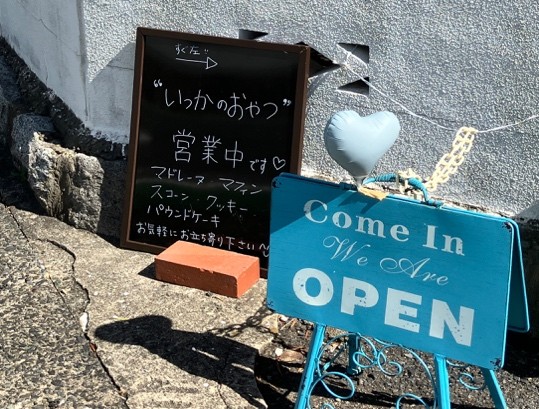 すぐ左!!
→
"いつかのおやつ"
営業中です♡
マドレーヌ マフィン
スコーン クッキー
パウンドケーキ
お気軽にお立ち寄り下さい〜
Come In
We Are
OPEN